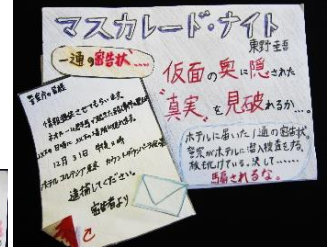 マスカレード・ナイト
東野圭吾
一通の密告状....
仮面の奥に隠された
"真実"を見破れるか...。
ホテルに届いた1通の密告状。
警察がホテルに潜入捜査をする。
決して......
騙されるな。
警視庁の皆様
情報提供させてもらいます。
12月31日 午後11時
ホテルコルテシア東京 カウントダウンパーティ会場
逮捕してください。
密告者より